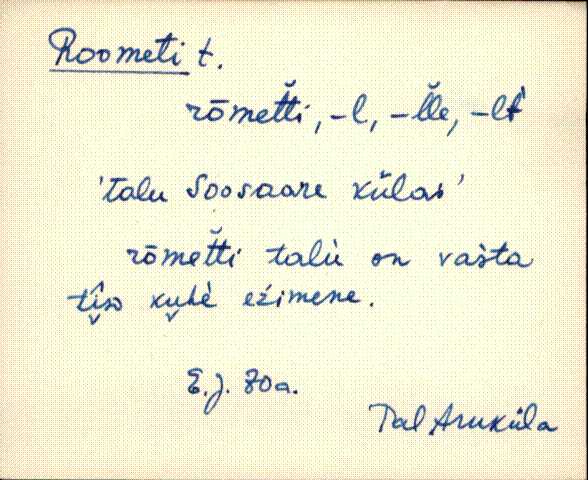 Roometi t.
rōmet̆ti, -l, -l̆le, -lt
'talu Soosaare külas'
rōmet̆ti talù on vaśta
kuhè eźimene.
E. J. 80a.
Tal Aruküla